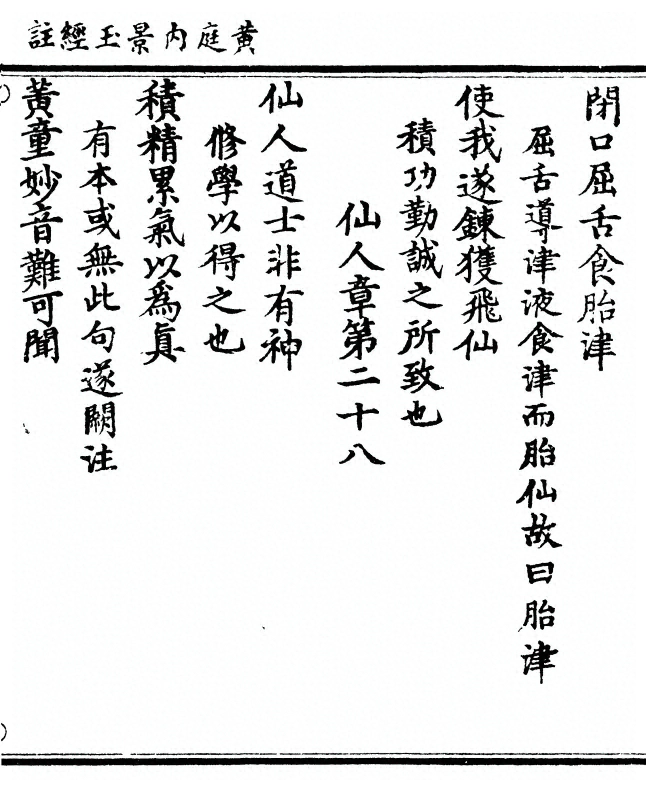 黃庭內景玉經註
閉口屈舌食胎津
屈舌導津液食津而胎仙故曰胎津
使我遂鍊獲飛仙
積功勤誠之所致也
仙人章第二十八
仙人道士非有神
修學以得之也
積精累氣以為真
有本或無此句遂闕註
黃童妙音難可聞